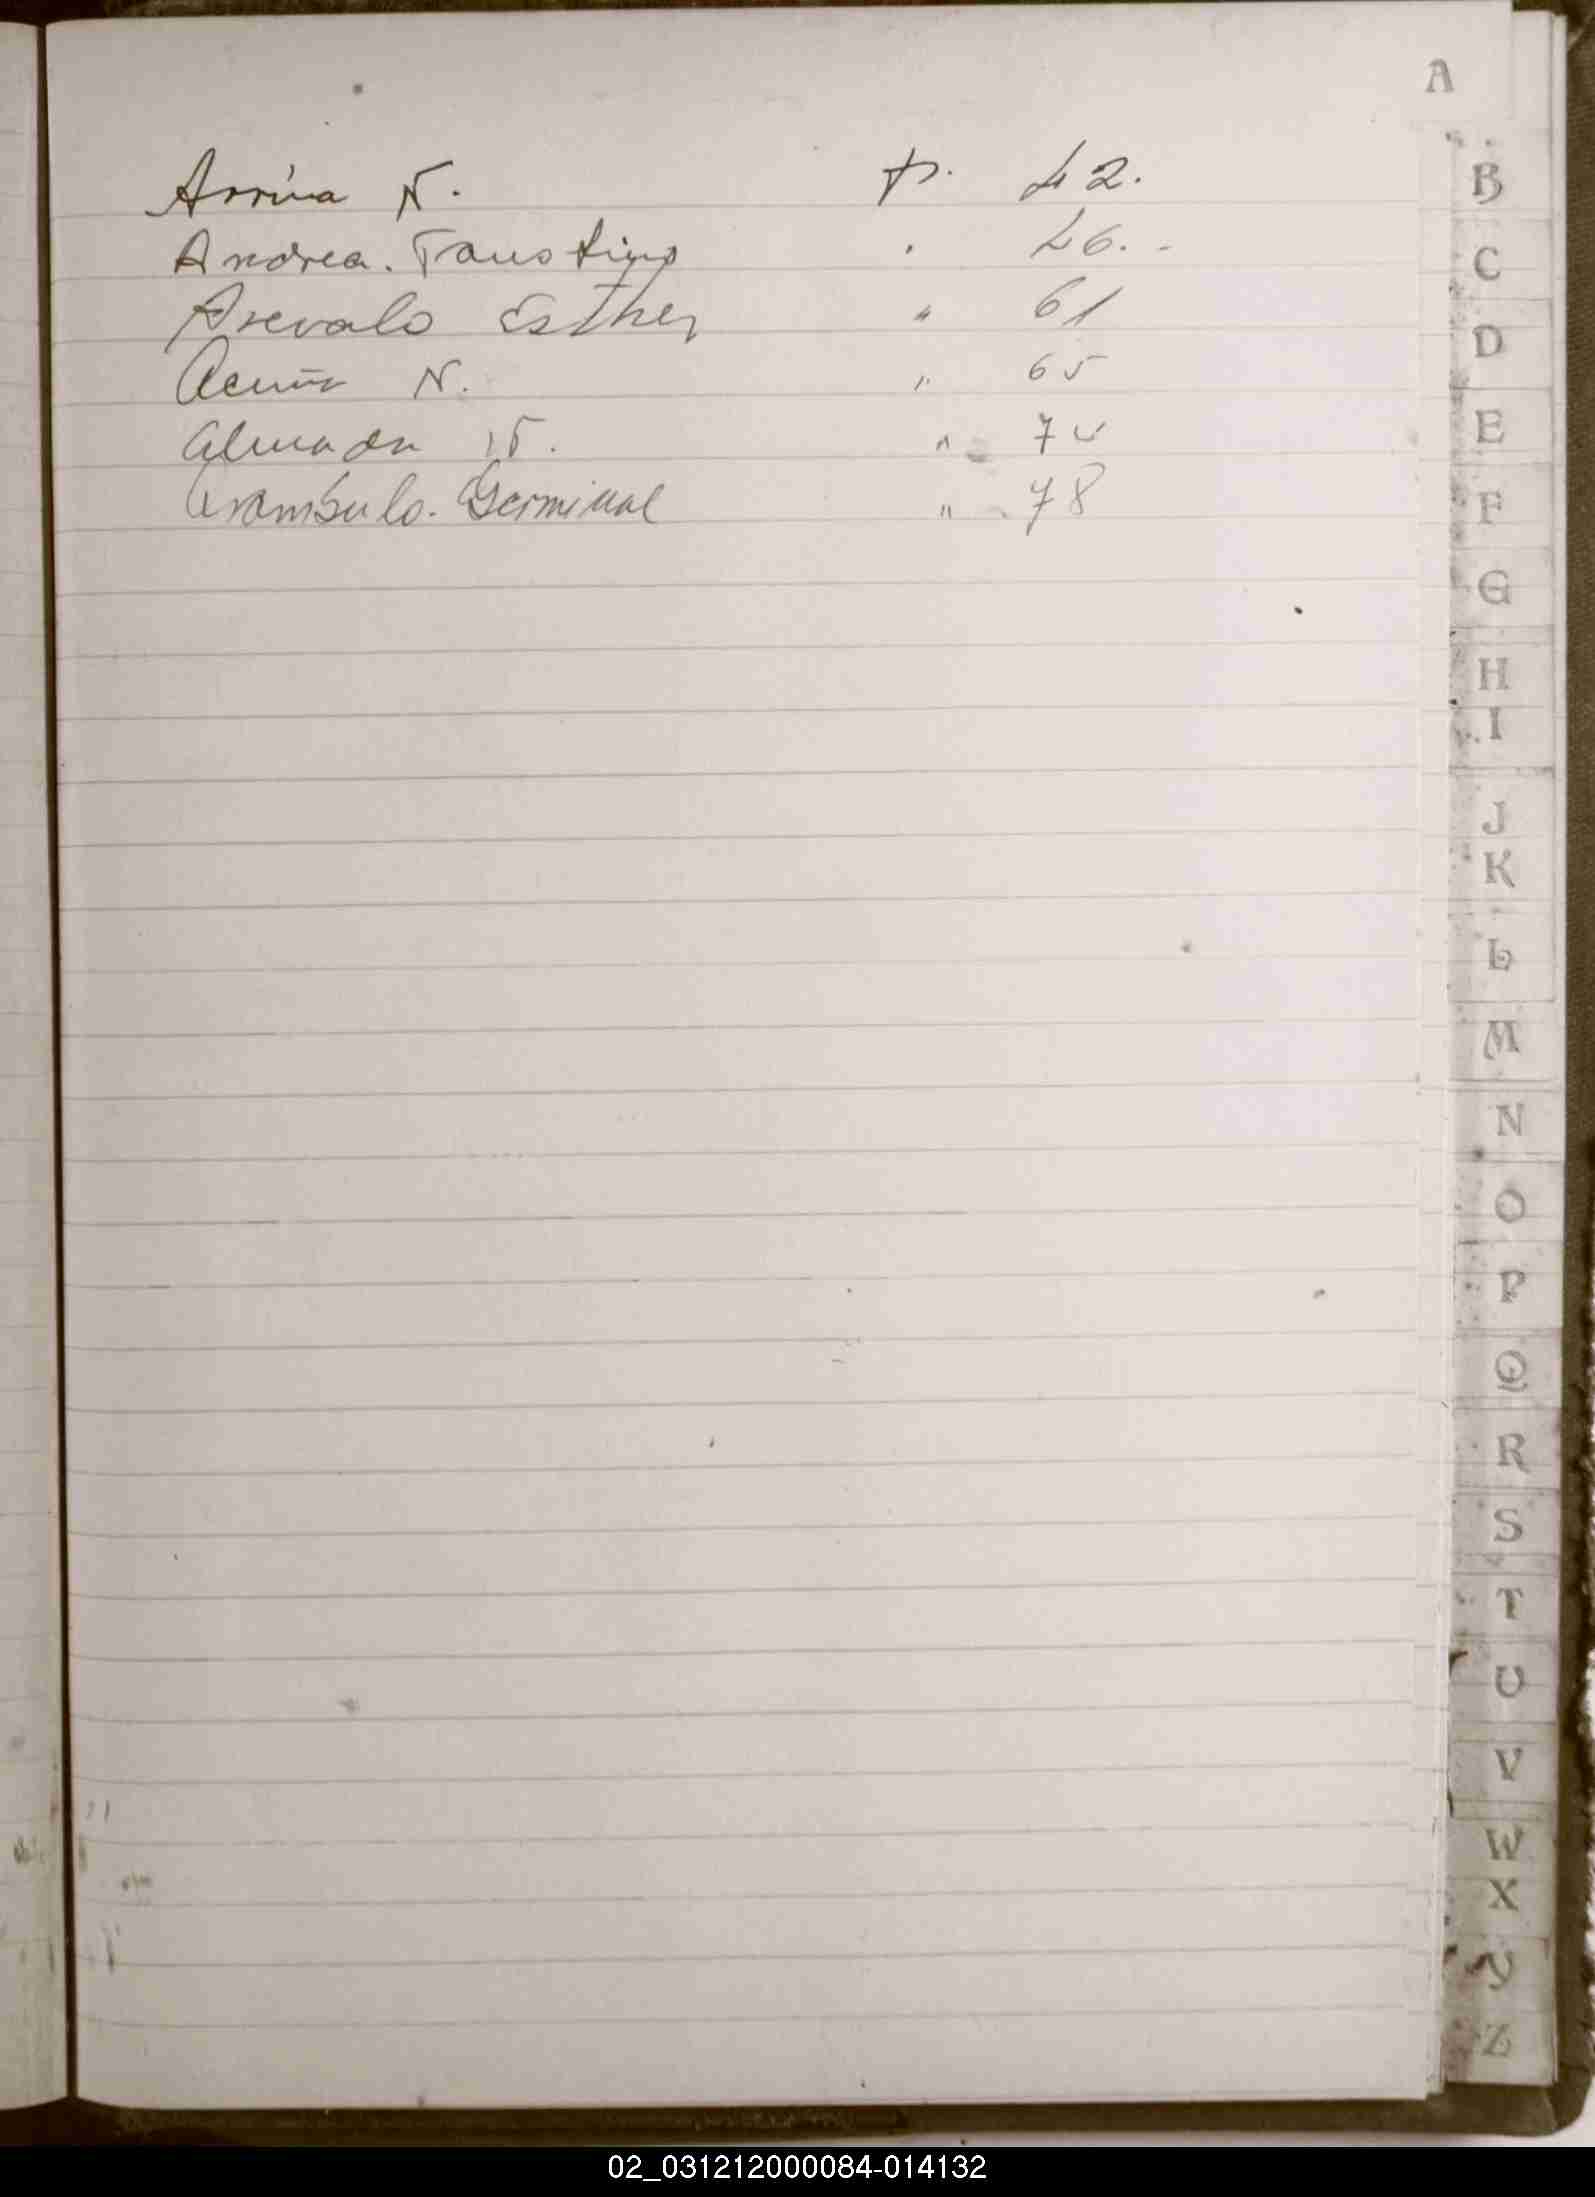 A
Arrúa N. p. 42.
Andrea. Faustino . 46. -
Arevalo Esther " 61
Acuña N. " 65
Almada N. " 7
Arambulo. Germinal " 78
B
C
D
E
F
G
H
I
J
K
L
M
N
O
P
Q
R
S
T
U
V
W
X
Y
Z
02_031212000084-014132